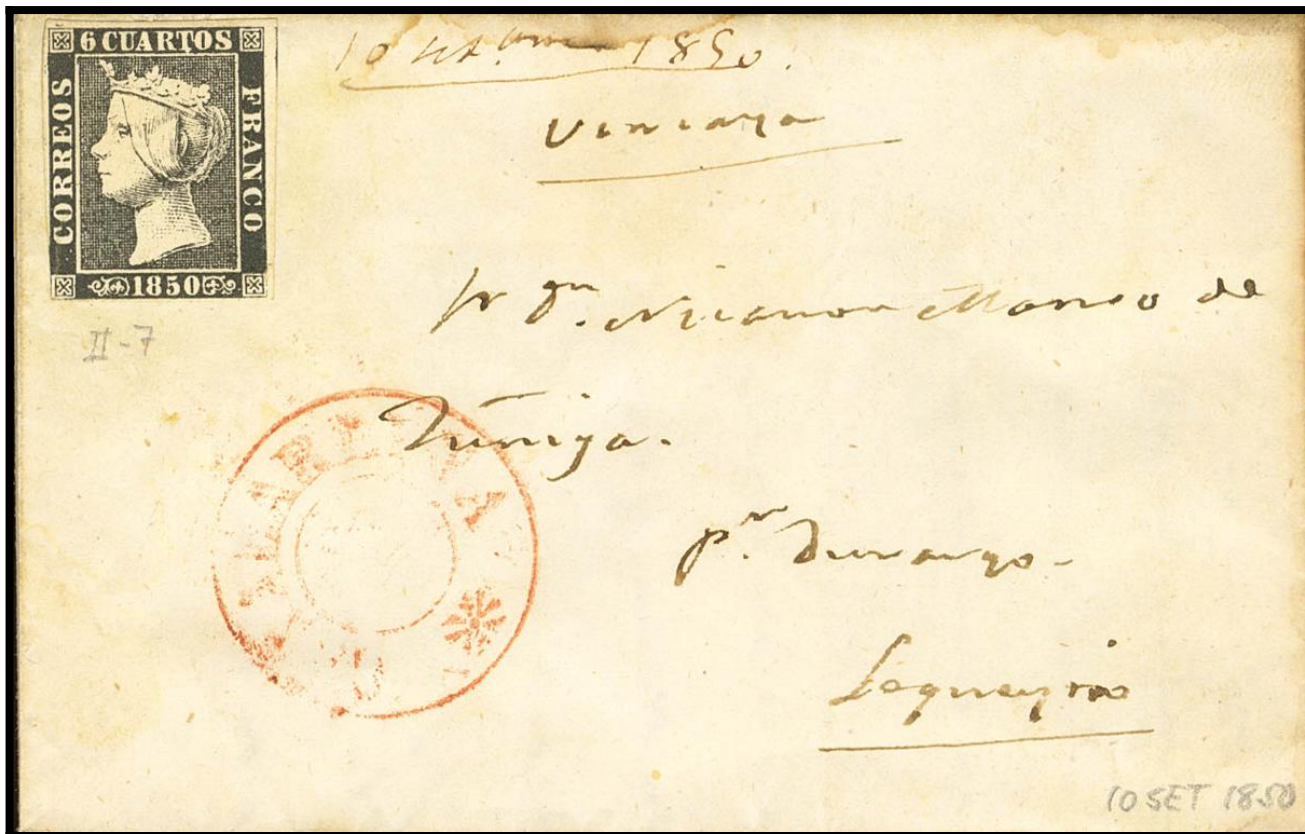 6 CUARTOS
CORREOS
FRANCO
1850
10 1850.
Vizcaya
Sr Dn. Nicanor Manso de
Zúñiga.
II-7
pr. Durango.
Lequeytio
10 SET 1850